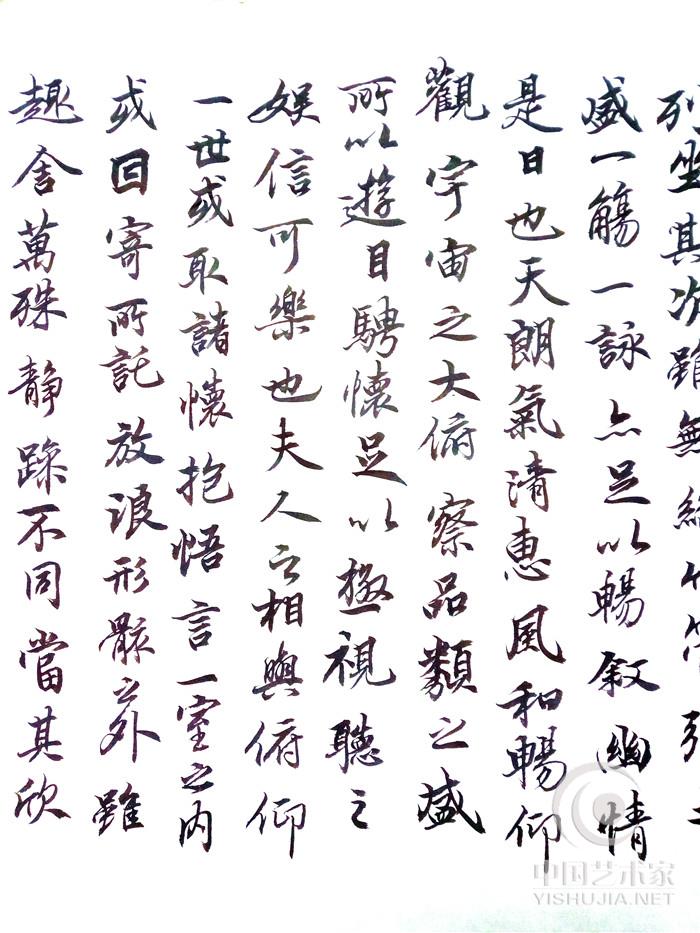 列坐其次雖無絲竹管弦之
盛一觴一詠亦足以暢叙幽情
是日也天朗氣清惠風和暢仰
觀宇宙之大俯察品類之盛
所以遊目騁懷足以極視聽之
娱信可樂也夫人之相與俯仰
一世或取諸懷抱悟言一室之内
或因寄所託放浪形骸之外雖
趣舍萬殊静躁不同當其欣
中国艺术家
YISHUJIA.NET